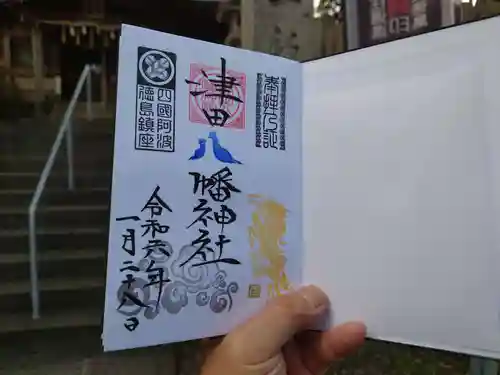 奉拝乃証
津田
八幡神社
四国阿波
徳島鎮座
令和六年
一月二十八日